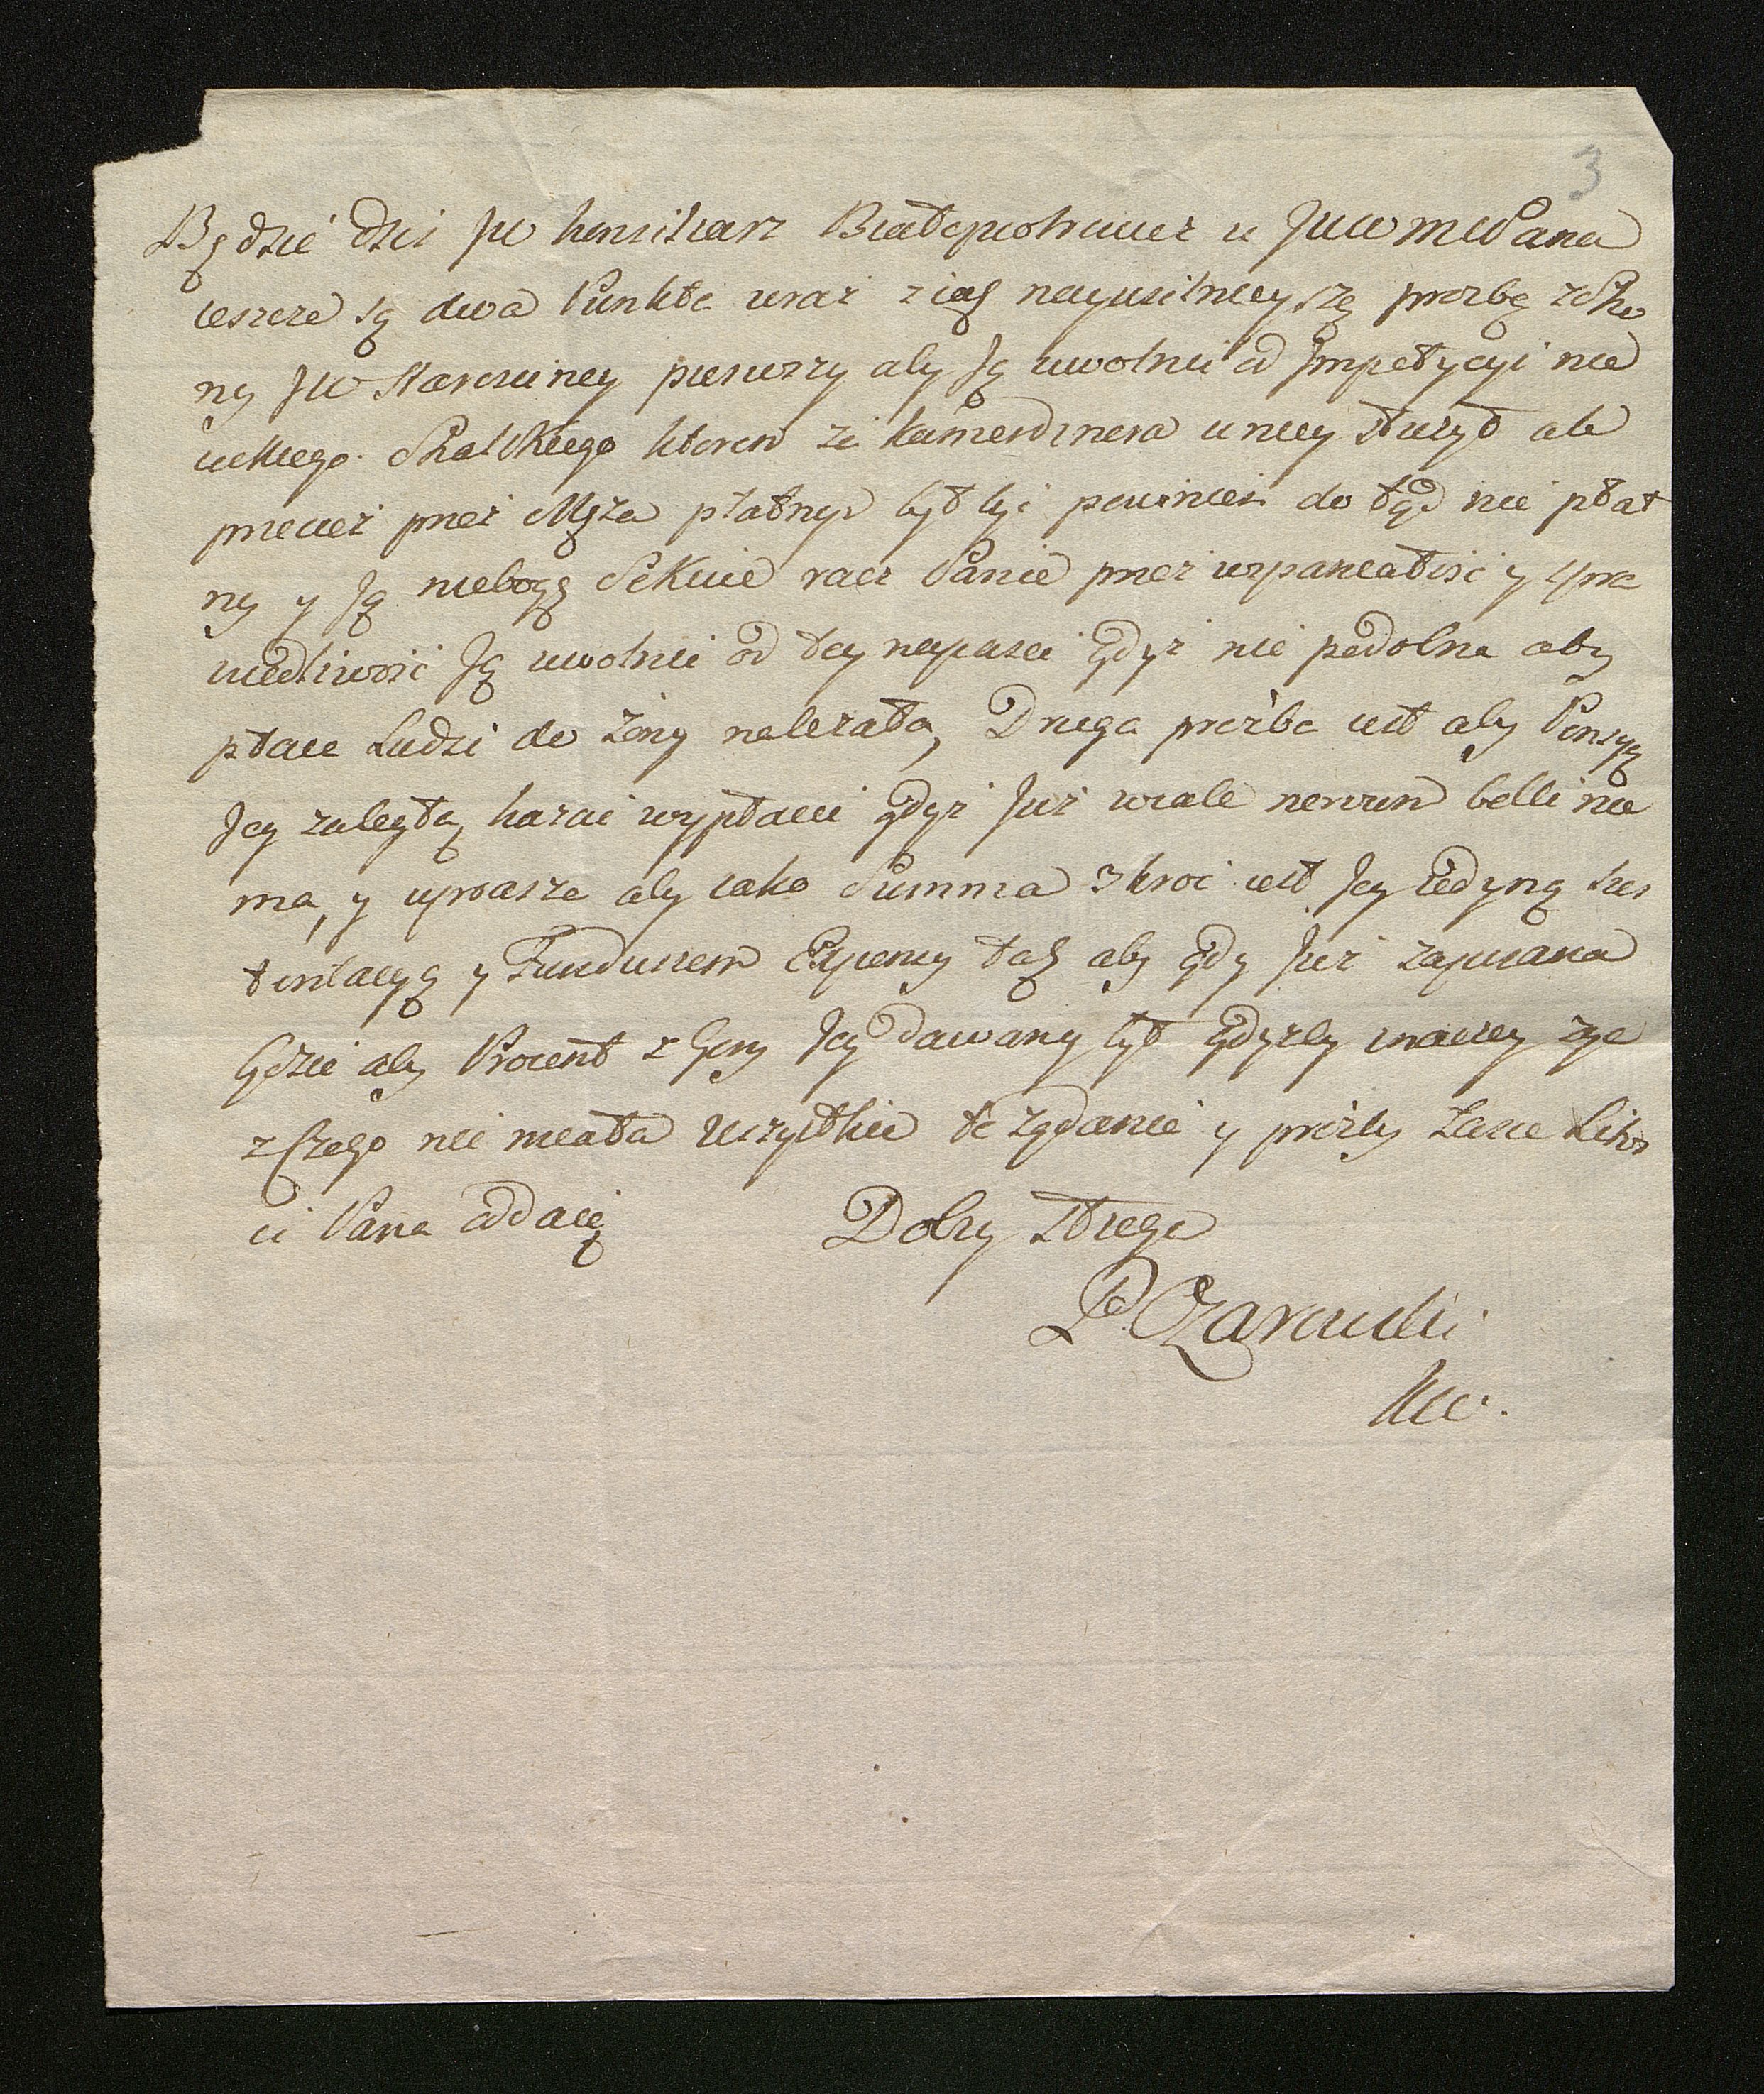 3
Będzie dzis JW konsiliarz Białopiotrowicz u JWWMWPana
ieszcze są dwa Punkta wraz z iak nayusilnieyszą prozbą
ny JW Starosciney pierwszy aby Ją uwolnic od Impetycyi nie
iakiego Skalskiego ktoren za kamerdynera u niey służył ale
przeciez przez Męża płatnym był byc powinien do tąd nie płat
ny y Ją niebogę Sekuie racz Panie przez wspaniałosc y spra
wiedliwosc Ją uwolnic od tey napasci gdyz nie podobna aby
płaca Ludzi do Zony nalezała, Druga prozba iest aby Pensyą
Jey zaległą kazac wypłacic gdyz Juz wcale nervum belli nie
ma, y uprasza aby iako Summa 3 kroc iest Jey iedyną sus
tentacyą y Funduszem Expensy tak aby gdy Juz zapisana
będzie aby Procent z Gory Jey dawany był gdyzby inaczey zyc
z Czego nie miała Wszystkie te ządanie y prozby Łasce Litos
ci Pana oddaię
Dobry Sługa
P Czarnucki
mp.